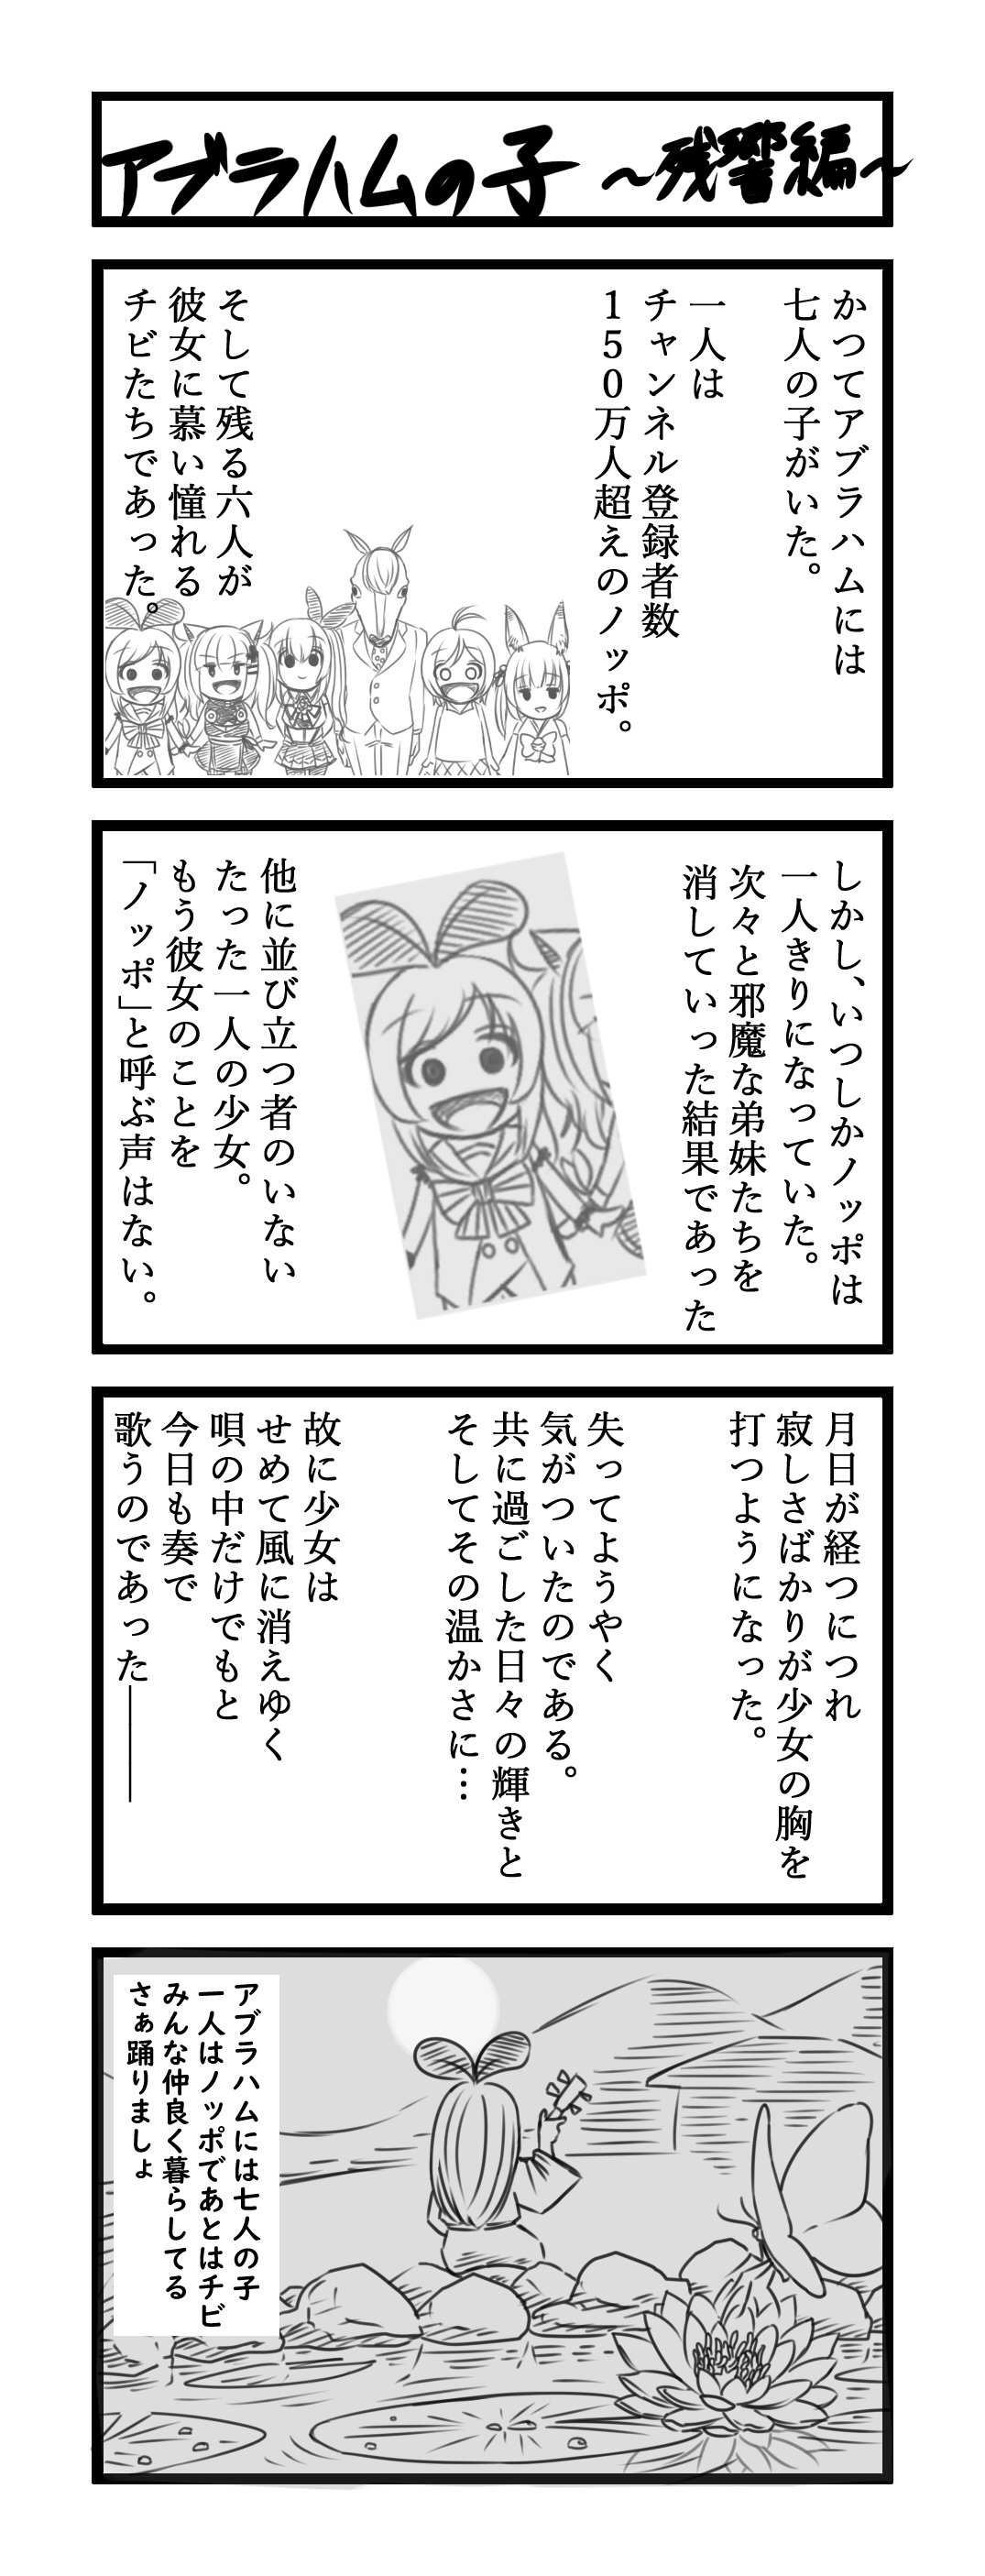 アブラハムの子 ～残響編～
かつてアブラハムには
七人の子がいた。
一人は
チャンネル登録者数
１５０万人超えのノッポ。
そして残る六人が
彼女に慕い憧れる
チビたちであった。
しかし、いつしかノッポは
一人きりになっていた。
次々と邪魔な弟妹たちを
消していった結果であった
他に並び立つ者のいない
たった一人の少女。
もう彼女のことを
「ノッポ」と呼ぶ声はない。
月日が経つにつれ
寂しさばかりが少女の胸を
打つようになった。
失ってようやく
気がついたのである。
共に過ごした日々の輝きと
そしてその温かさに…
故に少女は
せめて風に消えゆく
唄の中だけでもと
今日も奏で
歌うのであった―――
アブラハムには七人の子
一人はノッポであとはチビ
みんな仲良く暮らしてる
さぁ踊りましょ